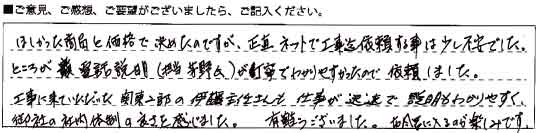 ■ご意見、ご感想、ご要望がございましたら、ご記入ください。
ほしかった商品と価格で決めたのですが、正直ネットで工事を依頼する事は少し不安でした。
ところが 電話説明(担当 芳野氏)が丁寧でわかりやすかったので 依頼しました。
工事に来ていただいた 関東2部の 伊藤 さんも 仕事が迅速で 説明もわかりやすく、
御社の社内体制の良さを感じました。 有難うございました。 お風呂に入るのが楽しみです。